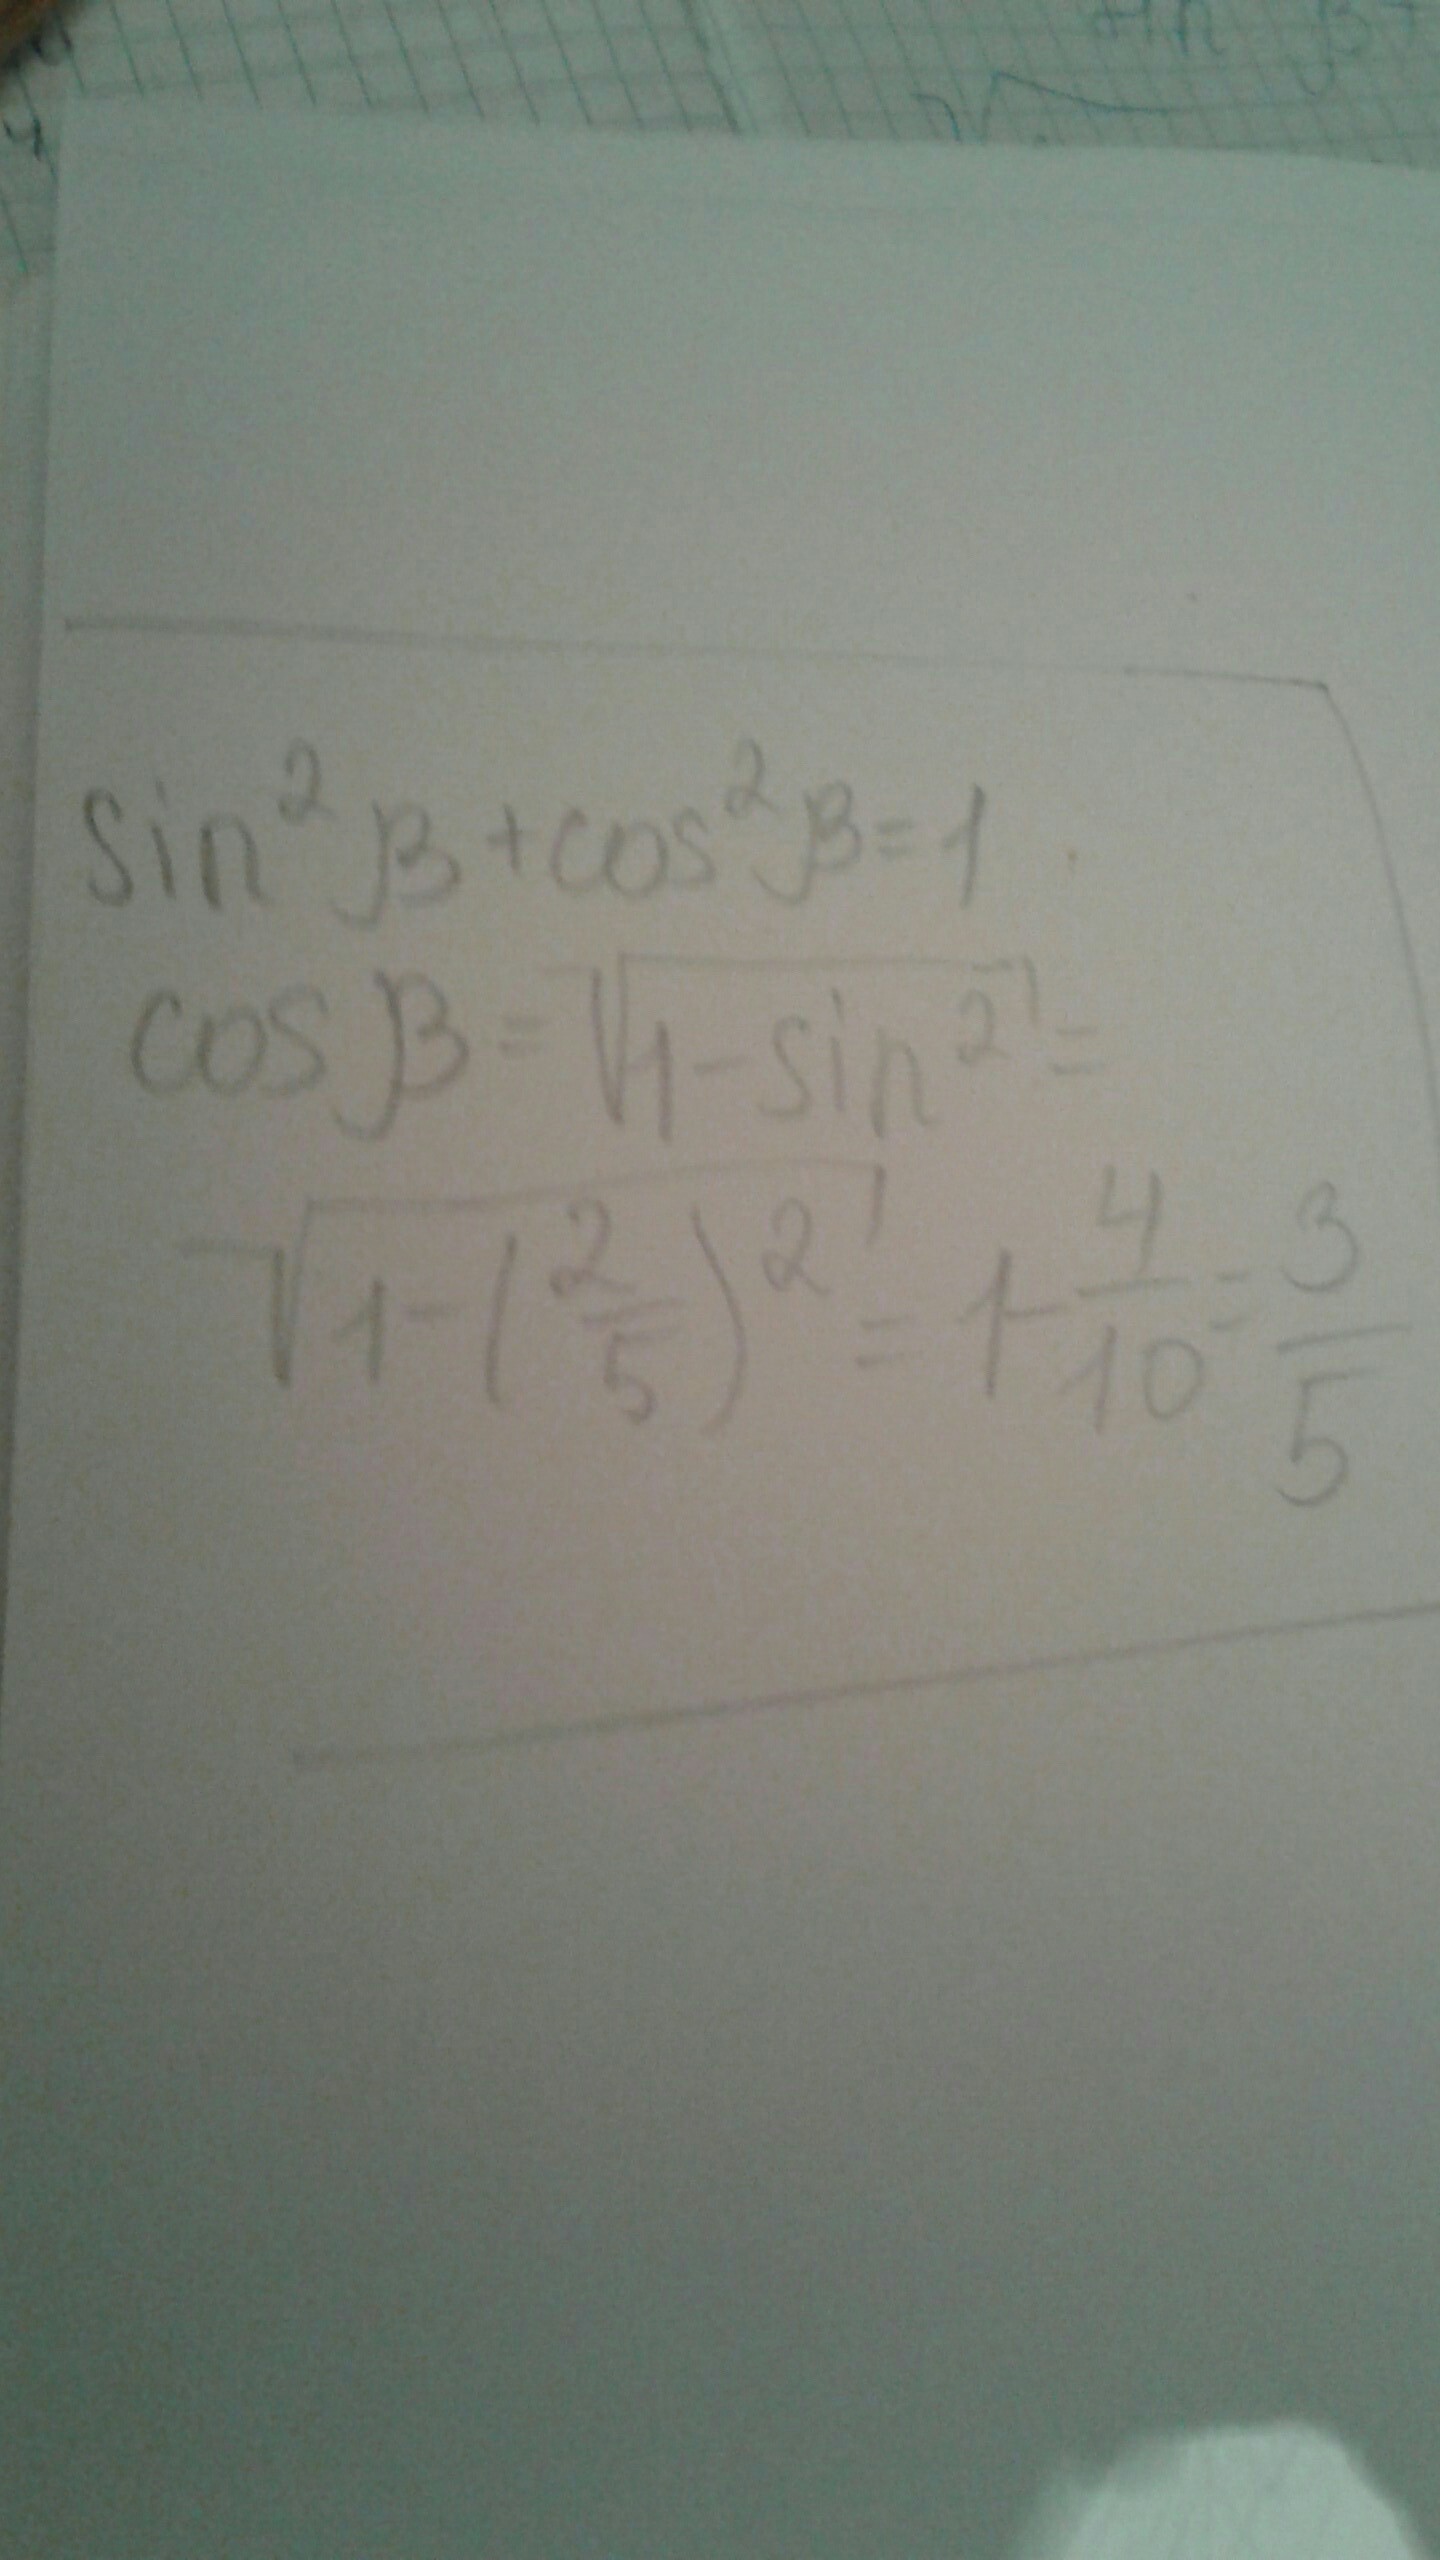 sin²β+cos²β=1
cosβ=√(1-sin²)=
√(1-(2/5)²)=1-4/10=3/5